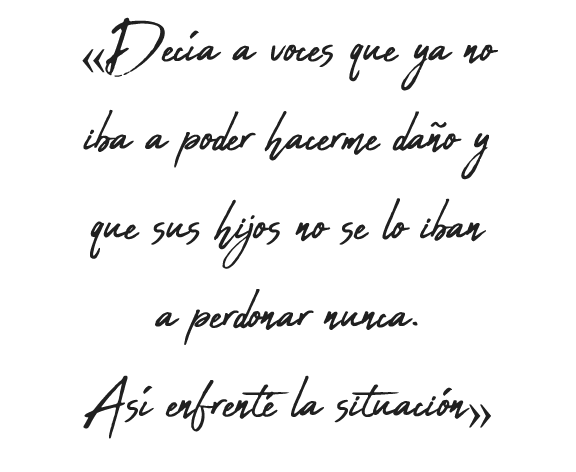 «Decía a voces que ya no
iba a poder hacerme daño y
que sus hijos no se lo iban
a perdonar nunca.
Así enfrenté la situación»